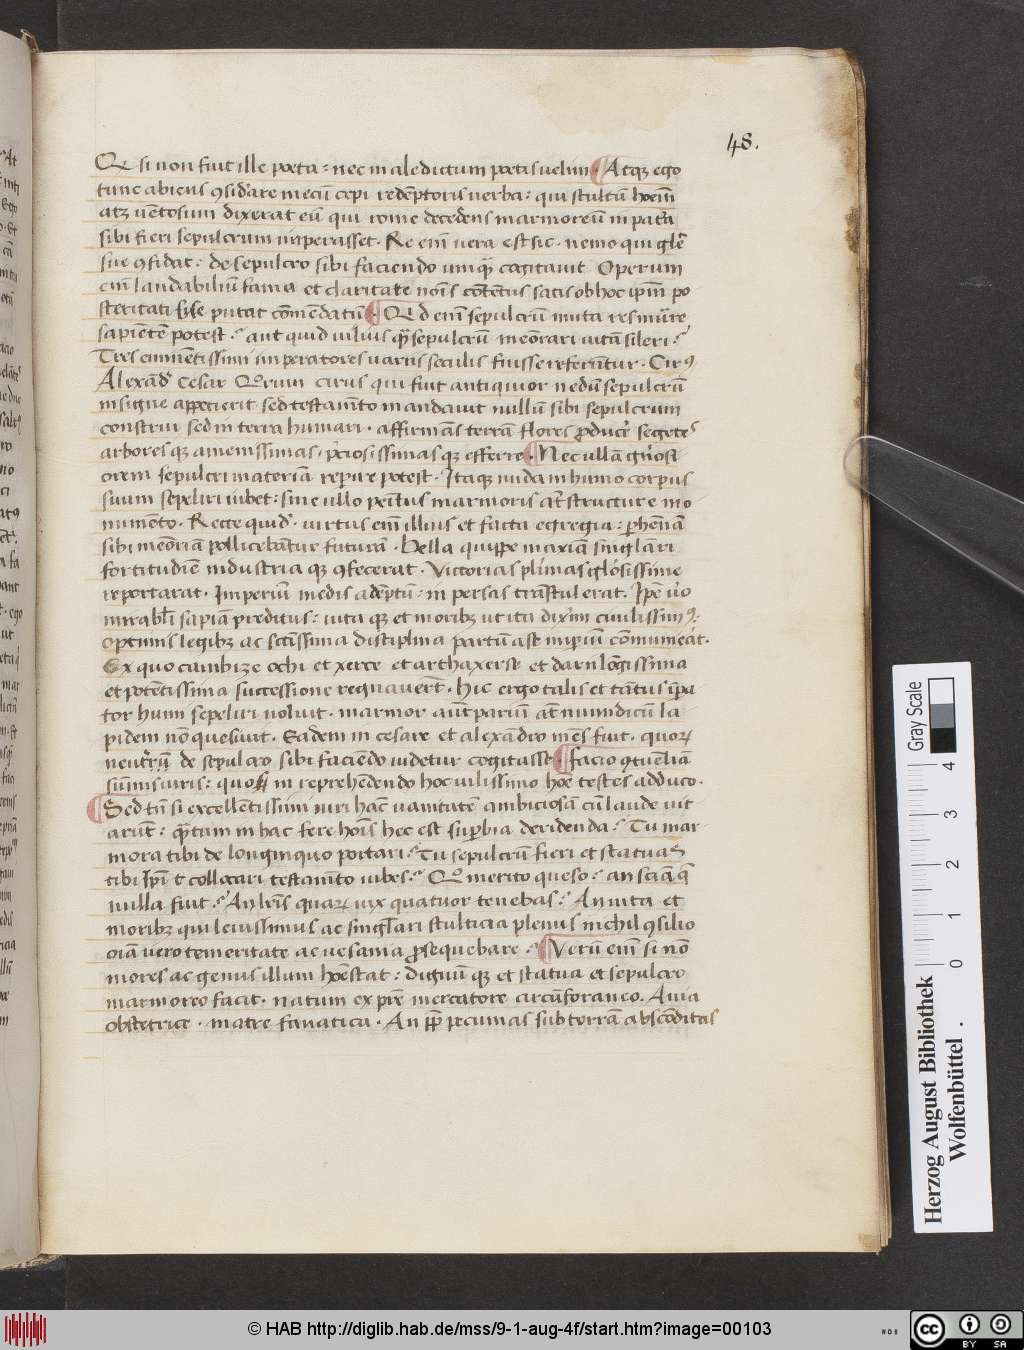 48.
Qd si non fuit ille poeta: nec maledictum poetis uelim. Atqꝫ ego
tunc abiens ꝯsid'are mecū cepi redēptoris uerba: qui stultū hoīem
atqꝫ uētosum dixerat eū qui rome decedens marmoreū in pat'a
sibi fieri sepulcrum imperasset. Re em̄ uera est sic. nemo qui glē
sue ꝯfidat: de sepulcro sibi faciendo umq̄ cogitauit Operum
em̄ laudabiliū fama et claritate nois cōtētus satis ob hoc ip̄m po
steritati putat cōmendatū. Qd em̄ sepulcrū muta res iuuare
sapiētē potest? aut quid uilius q̄ sepulcrū meōrari uitā sileri?
Tres eminētissimi imperatores uariis seculis fuisse referūtur. Cirꝰ
Alexād' Cesar Quorum cirus qui fuit antiquior nedū sepulcrū
insigne appetierit sed testamēto mandauit nullū sibi sepulcrum
construi sed in terra humari. affirmās terrā flores ꝓducer' segetes
arbores qꝫ amenissimas p'ciosissimas qꝫ efferre. Nec ullā gn'osi
orem sepulcri materiā reperire potest. Itaqꝫ nuda in humo corpus
suum sepeliri iubet: sine ullo penitus marmoris aut structure mo
numēto. Recte quid'. uirtus em̄ illius et facta egregia: perhennā
sibi meōriā pollicebātur futurā. Bella quippe maxīa singlāri
fortitudīe industria qꝫ ꝯfecerat. Victorias pl'imas gl'osissime
reportarat. Imperiū medis adēptū: in persas trāstulerat. Ipē u'o
mirabili sapiētia preditus: uita qꝫ et moribꝫ ut ita dix'im ciuilissimꝰ:
optimis legibꝫ ac sc̄issima disciplina partū ast imp̄iū cōmunicāt.
Ex quo cambize ochi et xerce et arthaxerse et darii lōgissima
et potētissima successione regnauerūt. Hic ergo talis et tātus īpa
tor humi sepeliri uoluit. marmor aūt pariū aut numidicū la
pidem nō quesiuit. Eadem in cesare et alexādro mēs fuit. quoꝝ
neut'rū de sepulcro sibi faciēdo uidetur cogitasse. facio ꝯtueliā
sūmis uiris: quos in reprehēdendo hoc uilissimo hoīe testes adduco.
Sed tn̄ si excellētissimi uiri hāc uanitatē ambiciosā cū laude uit
arūt: q̄tum in hac fere hois hec est sup̄bia deridenda? Tu mar
mora tibi de longinquo portari? Tu sepulcrū fieri et statuas
tibi ip̄i collocari testamēto iubes? Quo merito queso? an scia q̄
nulla fuit? An lr̄is quaꝝ uix quatuor tenebas? An uita et
moribꝫ qui leuissimus ac singl'ari stulticia plenus nichil ꝯsilio
oīa uero temeritate ac uesania ꝓsequebare? Verū em̄ si nō
mores ac genus illum honestat: dignū qꝫ et statua et sepulcro
marmoreo facit. natum ex pr̄e mercatore circūforaneo. Auia
obstetrice. matre fanatica. An ꝓpter pecunias sub terrā abscōditas
Gray Scale
0 1 2 3 4
Herzog August Bibliothek
Wolfenbüttel .
© HAB http://diglib.hab.de/mss/9-1-aug-4f/start.htm?image=00103
WDB
cc BY SA